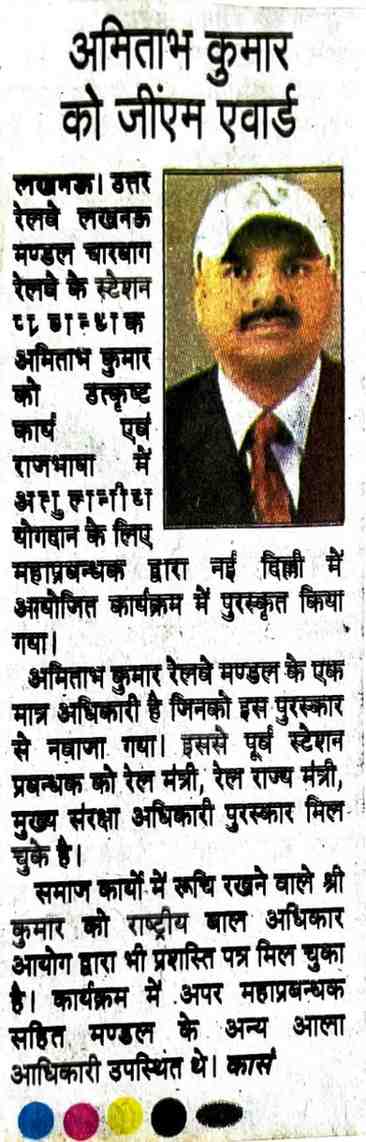 अमिताभ कुमार
को जीएम एवार्ड
लखनऊ। उत्तर
रेलवे लखनऊ
मण्डल चारबाग
रेलवे के स्टेशन
अमिताभ कुमार
को उत्कृष्ट
कार्य एवं
राजभाषा में
योगदान के लिए
महाप्रबन्धक द्वारा नई दिल्ली में
आयोजित कार्यक्रम में पुरस्कृत किया
गया।
अमिताभ कुमार रेलवे मण्डल के एक
मात्र अधिकारी है जिनको इस पुरस्कार
से नवाजा गया। इससे पूर्व स्टेशन
प्रबन्धक को रेल मंत्री, रेल राज्य मंत्री,
मुख्य संरक्षा अधिकारी पुरस्कार मिल
चुके है।
समाज कार्यो में रूचि रखने वाले श्री
कुमार को राष्ट्रीय बाल अधिकार
आयोग द्वारा भी प्रशस्ति पत्र मिल चुका
है। कार्यक्रम में अपर महाप्रबन्धक
सहित मण्डल के अन्य आला
आधिकारी उपस्थित थे। कासं